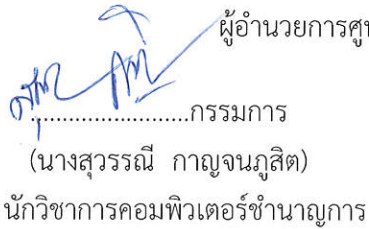 ผู้อำนวยการศูน
..........................กรรมการ
(นางสุวรรณี กาญจนภูสิต)
นักวิชาการคอมพิวเตอร์ชำนาญการ